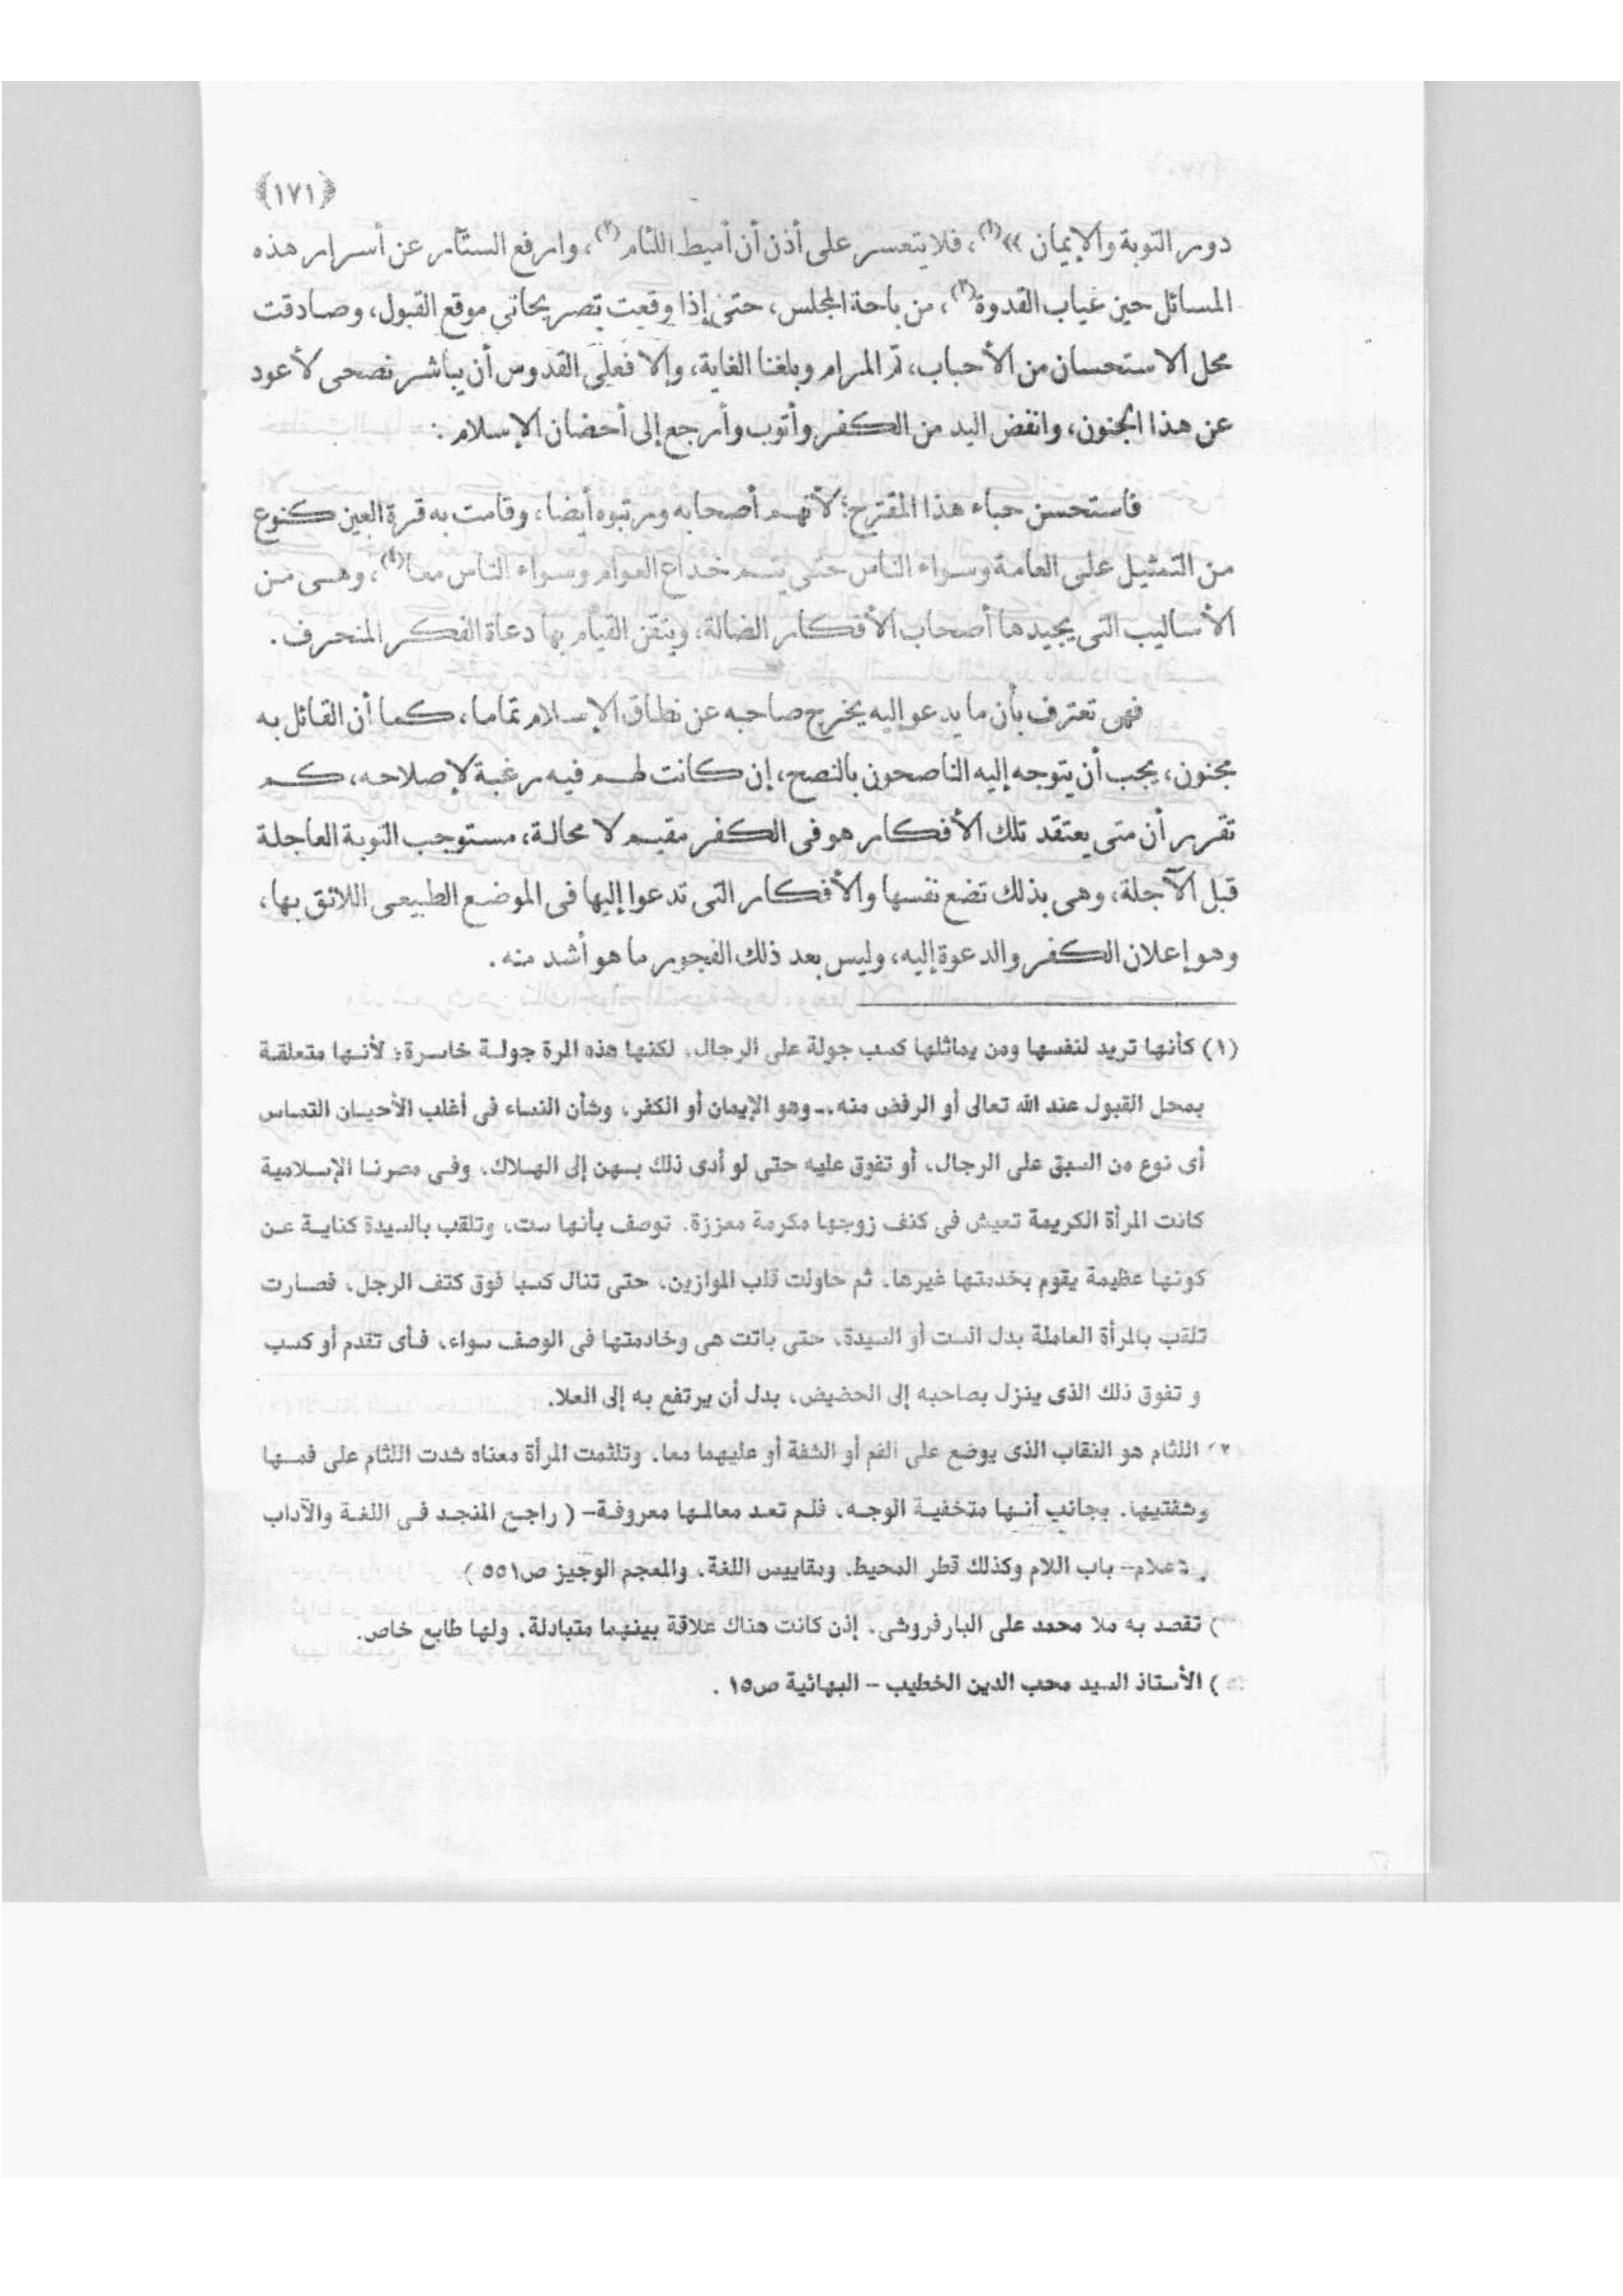 ﴿١٧١﴾
دور التوبة والإيمان »(١)، فلا يتعسر على أذن أن أميط اللثام(٢)، وارفع الستار عن أسرار هذه
المسائل حين غياب القدوة(٣)، من باحة المجلس، حتى إذا وقعت تصريحاتي موقع القبول، وصادقت
محل الاستحسان من الأحباب، تم المرام وبلغنا الغاية، وإلا فعلى القدوس أن يباشر نصحى لأعود
عن هذا الجنون، وانفض اليد من الكفر وأتوب وأرجع إلى أحضان الإسلام :
فاستحسن حباء هذا المقترح؛ لأنهم أصحابه ومرتبوه أيضا، وقامت به قرة العين كنوع
من التمثيل على العامة وسواء الناس حتى يتم خداع العوام وسواء الناس معا(٤)، وهى من
الأساليب التى يجيدها أصحاب الأفكار الضالة، ويتقن القيام بها دعاة الفكر المنحرف.
فهى تعترف بأن ما يدعو إليه يخرج صاحبه عن نطاق الإسلام تماما، كما أن القائل به
مجنون، يجب أن يتوجه إليه الناصحون بالنصح، إن كانت لهم فيه رغبة لإصلاحه، كم
تقرر أن متى يعتقد تلك الأفكار هو فى الكفر مقيم لا محالة، مستوجب التوبة العاجلة
قبل الآجلة، وهى بذلك تضع نفسها والأفكار التى تدعوا إليها فى الموضع الطبيعى اللائق بها،
وهو إعلان الكفر والدعوة إليه، وليس بعد ذلك الفجور ما هو أشد منه .
(١) كأنها تريد لنفسها ومن يماثلها كسب جولة على الرجال، لكنها هذه المرة جولة خاسرة؛ لأنها متعلقة
بمحل القبول عند الله تعالى أو الرفض منه.. وهو الإيمان أو الكفر، وشأن النساء فى أغلب الأحيان التماس
أى نوع من السبق على الرجال، أو تفوق عليه حتى لو أدى ذلك بهن إلى الهلاك، وفى مصرنا الإسلامية
كانت المرأة الكريمة تعيش فى كنف زوجها مكرمة معززة، توصف بأنها ست، وتلقب بالسيدة كناية عن
كونها عظيمة يقوم بخدمتها غيرها، ثم حاولت قلب الموازين، حتى تنال كسبا فوق كتف الرجل، فصارت
تلقب بالمرأة العاملة بدل الست أو السيدة، حتى باتت هى وخادمتها فى الوصف سواء، فأى تقدم أو كسب
و تفوق ذلك الذى ينزل بصاحبه إلى الحضيض، بدل أن يرتفع به إلى العلا.
٢) اللثام هو النقاب الذى يوضع على الفم أو الشفة أو عليهما معا، وتلثمت المرأة معناه شدت اللثام على فمها
وشفتيها، بجانب أنها متخفية الوجه، فلم تعد معالمها معروفة- ( راجع المنجد فى اللغة والآداب
علام- باب اللام وكذلك قطر المحيط، ومقاييس اللغة، والمعجم الوجيز ص٥٥١ )
) تقصد به ملا محمد على البارفروشى، إذن كانت هناك علاقة بينهما متبادلة، ولها طابع خاص.
) الأستاذ السيد محب الدين الخطيب - البهائية ص١٥ .